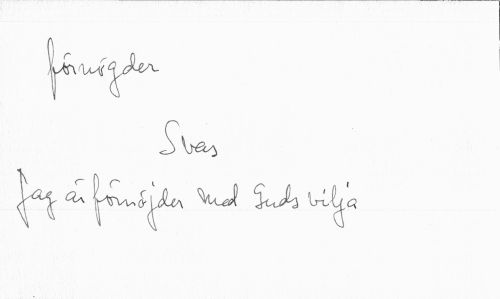 förnögder
Svas
Jag är förnöjder med Guds vilja